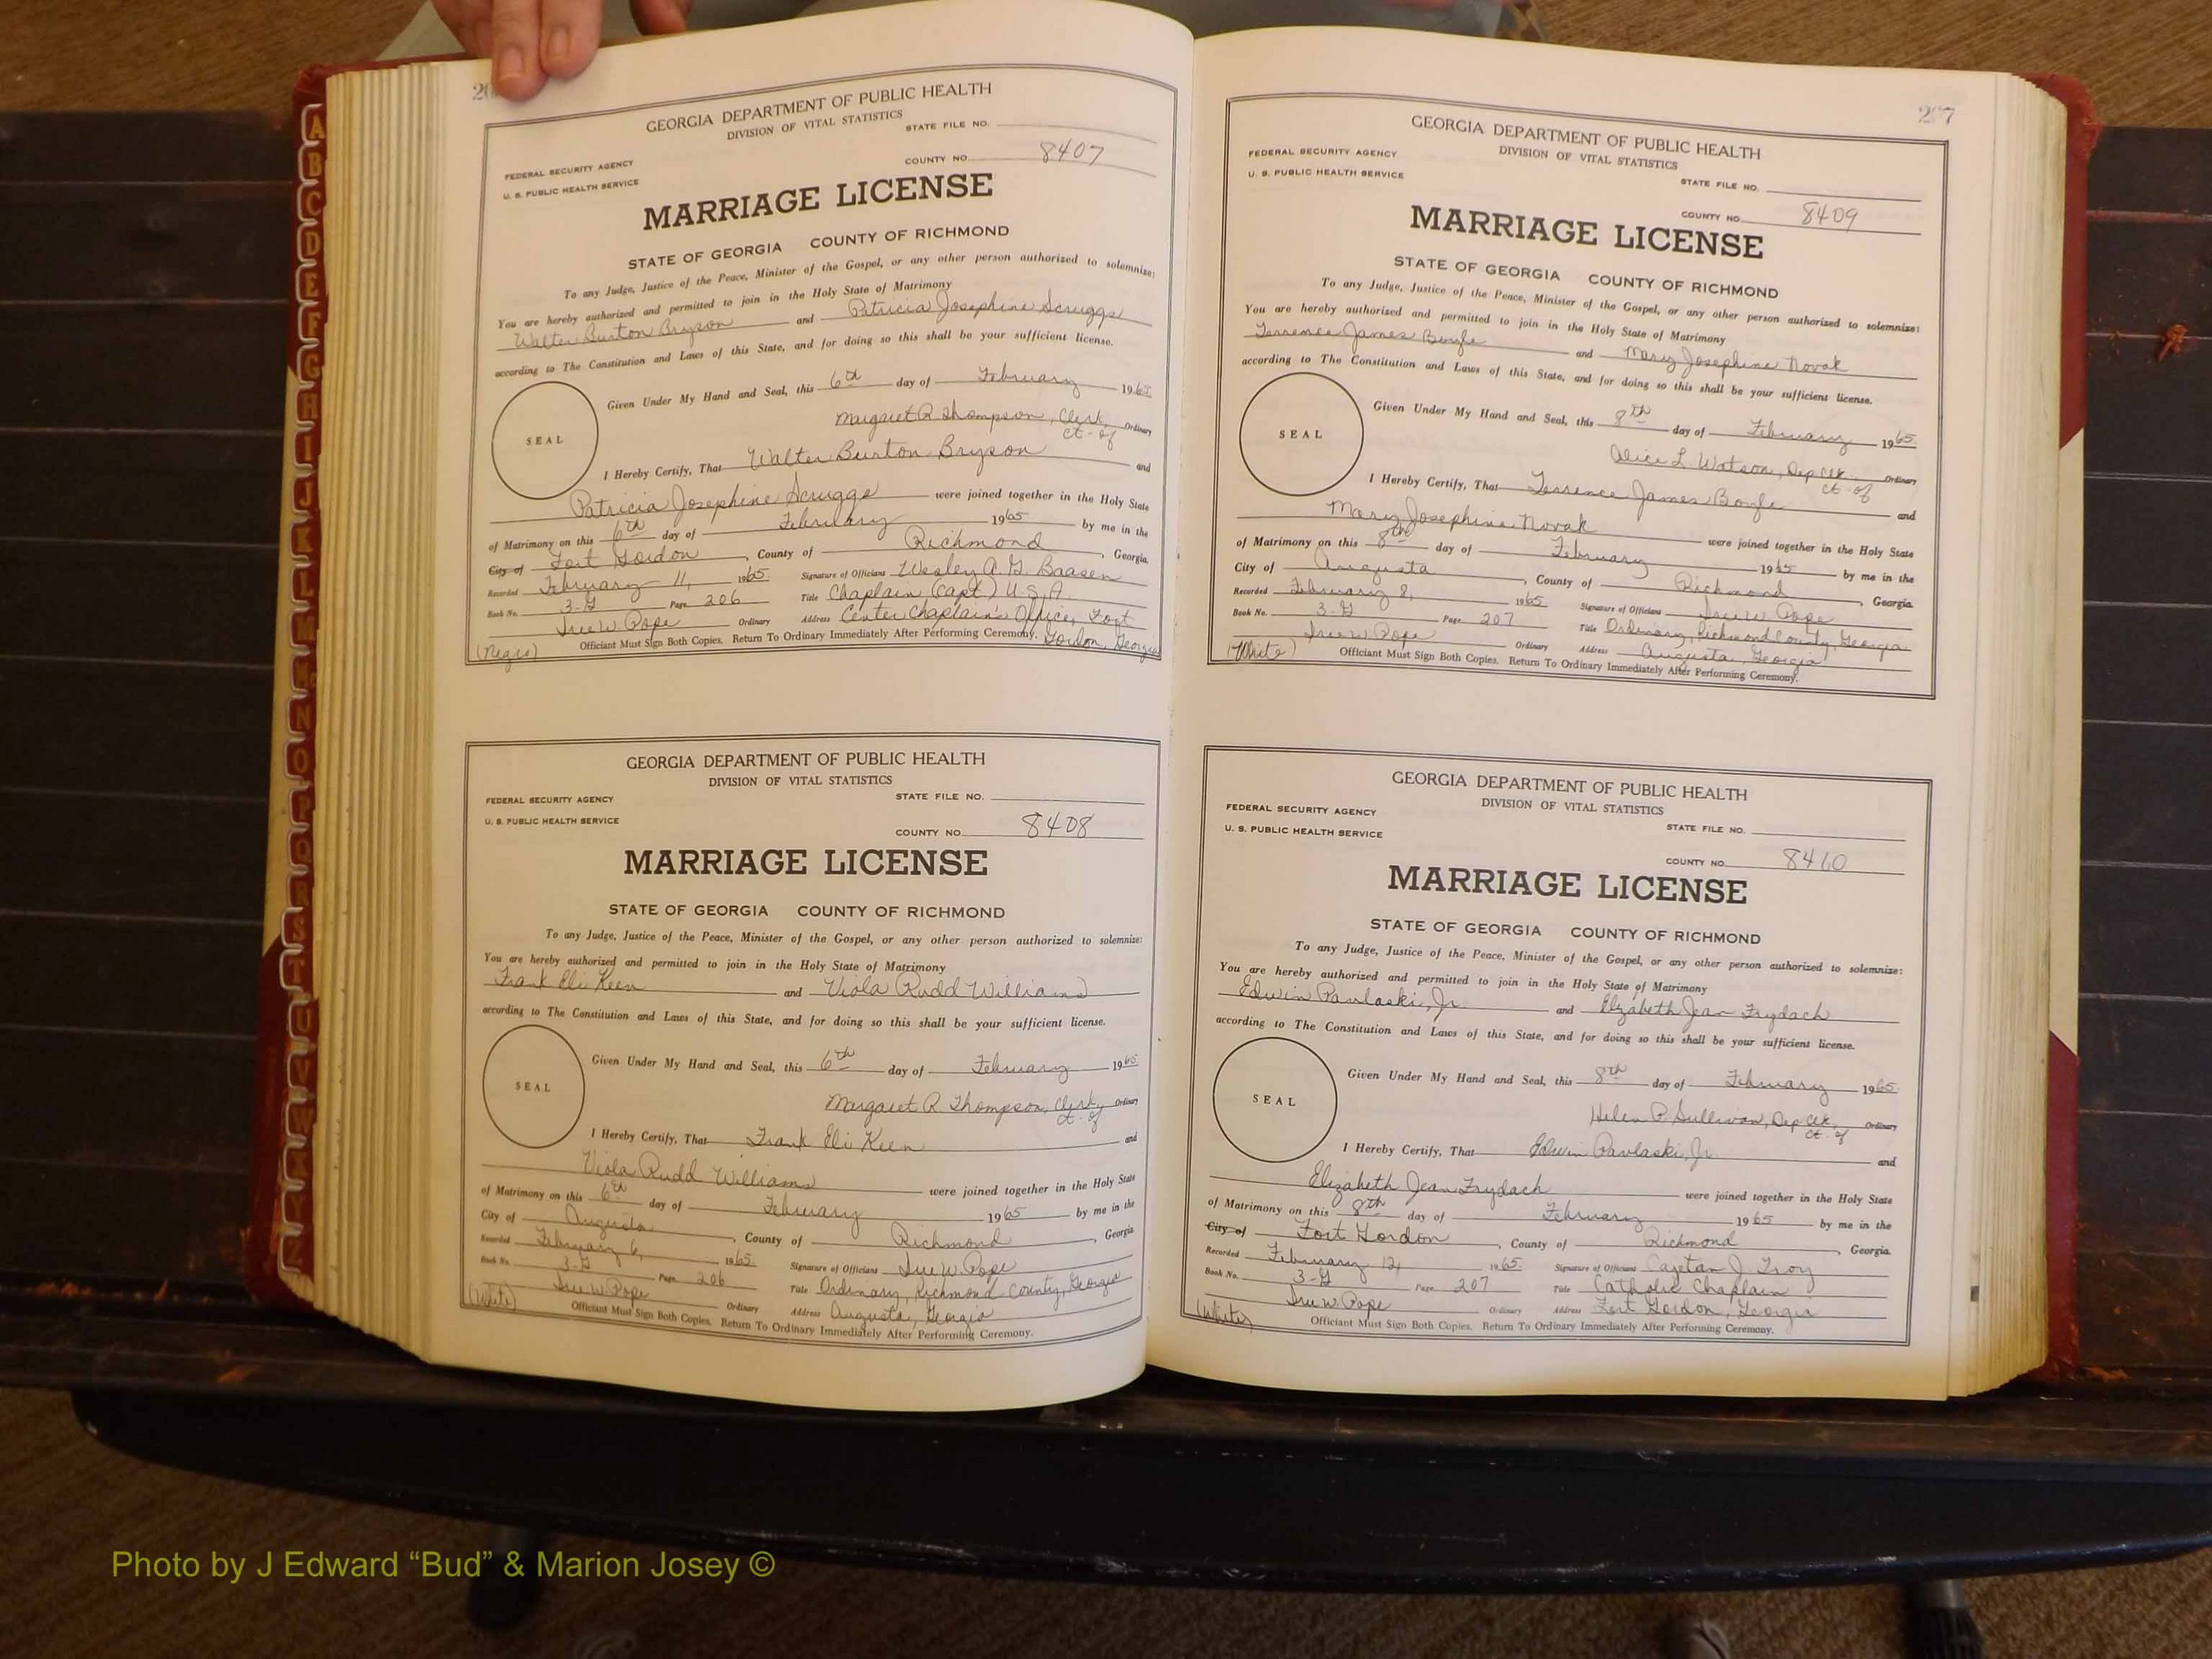 A
B
C
D
E
F
G
H
I
J
K
L
M
N
O
P
Q
R
S
T
U
V
W
20
GEORGIA DEPARTMENT OF PUBLIC HEALTH
DIVISION OF VITAL STATISTICS
STATE FILE NO.
FEDERAL SECURITY AGENCY
COUNTY NO. 8407
U. S. PUBLIC HEALTH SERVICE
MARRIAGE LICENSE
STATE OF GEORGIA COUNTY OF RICHMOND
To any Judge, Justice of the Peace, Minister of the Gospel, or any other person authorized to solemnize:
You are hereby authorized and permitted to join in the Holy State of Matrimony
Walter Burton Bryson and Patricia Josephine Scruggs
according to The Constitution and Laws of this State, and for doing so this shall be your sufficient license.
SEAL
Given Under My Hand and Seal, this 6th day of February 1965
Margaret R. Thompson, Clerk, Ordinary
Ct. of
I Hereby Certify, That Walter Burton Bryson and
Patricia Josephine Scruggs were joined together in the Holy State
of Matrimony on this 6th day of February 1965 by me in the
City of Fort Gordon, County of Richmond, Georgia.
Recorded February 11, 1965. Signature of Officiant Wesley A. G. Baasen
Book No. 3-G Page 206 Title Chaplain (Capt.) U.S.A.
Sue W. Pope Ordinary Address Center Chaplain's Office, Fort
(Negro) Officiant Must Sign Both Copies. Return To Ordinary Immediately After Performing Ceremony. Gordon, Georgia
GEORGIA DEPARTMENT OF PUBLIC HEALTH
DIVISION OF VITAL STATISTICS
FEDERAL SECURITY AGENCY STATE FILE NO.
U. S. PUBLIC HEALTH SERVICE
COUNTY NO. 8408
MARRIAGE LICENSE
STATE OF GEORGIA COUNTY OF RICHMOND
To any Judge, Justice of the Peace, Minister of the Gospel, or any other person authorized to solemnize:
You are hereby authorized and permitted to join in the Holy State of Matrimony
Frank Eli Keen and Viola Rudd Williams
according to The Constitution and Laws of this State, and for doing so this shall be your sufficient license.
SEAL
Given Under My Hand and Seal, this 6th day of February 1965
Margaret R. Thompson, Clerk, Ordinary
Ct. of
I Hereby Certify, That Frank Eli Keen and
Viola Rudd Williams were joined together in the Holy State
of Matrimony on this 6th day of February 1965 by me in the
City of Augusta, County of Richmond, Georgia
Recorded February 6, 1965. Signature of Officiant Sue W. Pope
Book No. 3-G Page 206 Title Ordinary, Richmond County, Georgia
Sue W. Pope Ordinary Address Augusta, Georgia
(White) Officiant Must Sign Both Copies. Return To Ordinary Immediately After Performing Ceremony.
207
GEORGIA DEPARTMENT OF PUBLIC HEALTH
DIVISION OF VITAL STATISTICS
FEDERAL SECURITY AGENCY
U. S. PUBLIC HEALTH SERVICE
STATE FILE NO.
COUNTY NO. 8409
MARRIAGE LICENSE
STATE OF GEORGIA COUNTY OF RICHMOND
To any Judge, Justice of the Peace, Minister of the Gospel, or any other person authorized to solemnize:
You are hereby authorized and permitted to join in the Holy State of Matrimony
Terrence James Boyle and Mary Josephine Novak
according to The Constitution and Laws of this State, and for doing so this shall be your sufficient license.
SEAL
Given Under My Hand and Seal, this 8th day of February 1965
Alice L. Watson, Dep Clk. Ordinary
Ct. of
I Hereby Certify, That Terrence James Boyle and
Mary Josephine Novak were joined together in the Holy State
of Matrimony on this 8th day of February 1965 by me in the
City of Augusta, County of Richmond, Georgia.
Recorded February 8, 1965 Signature of Officiant Sue W. Pope
Book No. 3-G Page 207 Title Ordinary, Richmond County, Georgia
Sue W. Pope Ordinary Address Augusta, Georgia
(White) Officiant Must Sign Both Copies. Return To Ordinary Immediately After Performing Ceremony.
GEORGIA DEPARTMENT OF PUBLIC HEALTH
DIVISION OF VITAL STATISTICS
FEDERAL SECURITY AGENCY
U. S. PUBLIC HEALTH SERVICE
STATE FILE NO.
COUNTY NO. 8410
MARRIAGE LICENSE
STATE OF GEORGIA COUNTY OF RICHMOND
To any Judge, Justice of the Peace, Minister of the Gospel, or any other person authorized to solemnize:
You are hereby authorized and permitted to join in the Holy State of Matrimony
Edwin Pavlaski, Jr. and Elizabeth Jean Frydach
according to The Constitution and Laws of this State, and for doing so this shall be your sufficient license.
SEAL
Given Under My Hand and Seal, this 8th day of February 1965.
Helen P. Sullivan, Dep Clk. Ordinary
Ct. of
I Hereby Certify, That Edwin Pavlaski, Jr. and
Elizabeth Jean Frydach were joined together in the Holy State
of Matrimony on this 8th day of February 1965 by me in the
City of Fort Gordon, County of Richmond, Georgia.
Recorded February 12, 1965. Signature of Officiant Cajetan J. Troy
Book No. 3-G Page 207 Title Catholic Chaplain
Sue W. Pope Ordinary Address Fort Gordon, Georgia
(White) Officiant Must Sign Both Copies. Return To Ordinary Immediately After Performing Ceremony.
Photo by J Edward “Bud” & Marion Josey ©